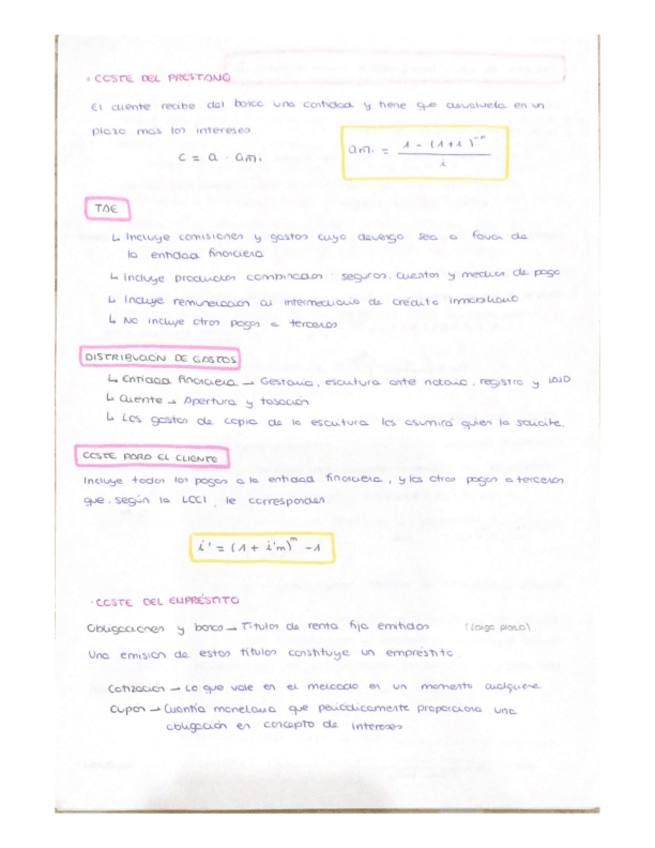 · COSTE DEL PRÉSTAMO
El cliente recibe del banco una cantidad y tiene que devolverla en un
plazo más los intereses
C = a · am.
am. = 1 - (1+i)^-n / i
TAE
↳ Incluye comisiones y gastos cuyo devengo sea a favor de
la entidad financiera
↳ Incluye productos combinados: seguros, cuentas y medios de pago
↳ Incluye remuneración al intermediario de crédito inmobiliario
↳ No incluye otros pagos a terceros
DISTRIBUCIÓN DE GASTOS
↳ Entidad financiera → Gestoría, escritura ante notario, registro y IAJD
↳ Cliente → Apertura y tasación
↳ Los gastos de copia de la escritura los asumirá quien la solicite.
COSTE PARA EL CLIENTE
Incluye todos los pagos a la entidad financiera, y los otros pagos a terceros
que, según la LCCI, le corresponden
i' = (1 + i'm)^m - 1
· COSTE DEL EMPRÉSTITO
Obligaciones y bonos → Títulos de renta fija emitidos (Largo plazo)
Una emisión de estos títulos constituye un empréstito.
Cotización → Lo que vale en el mercado en un momento cualquiera
Cupón → Cuantía monetaria que periódicamente proporciona una
obligación en concepto de intereses